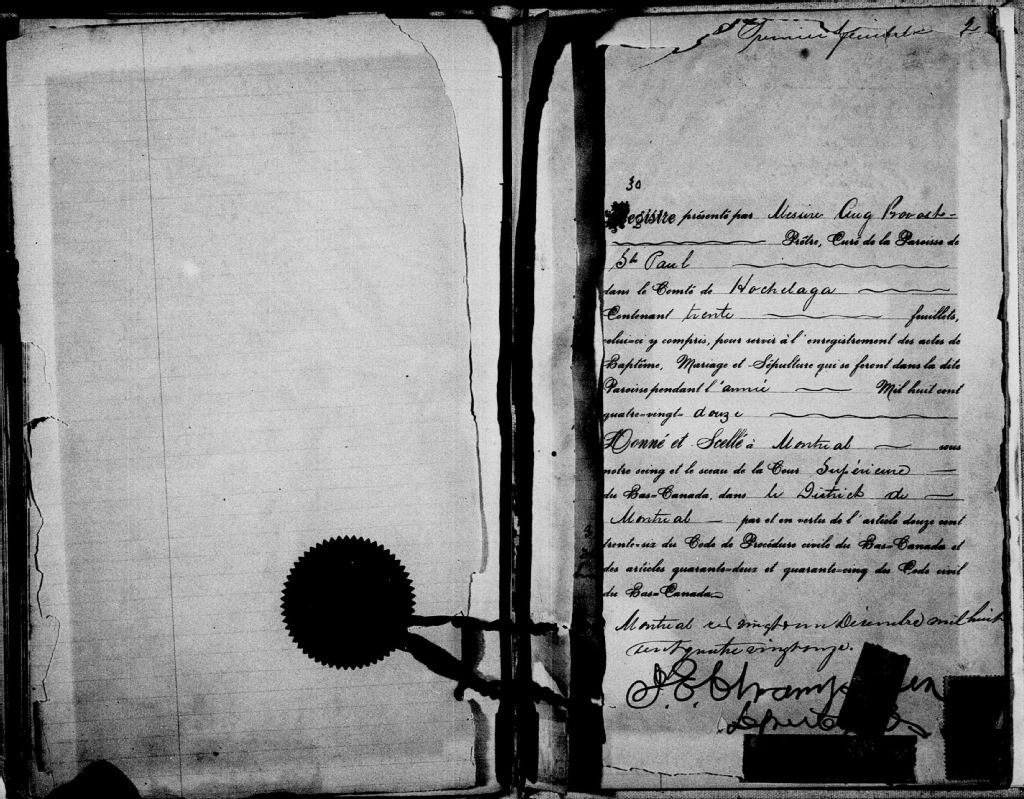 Premier feuillet 2
30
Registre présenté par Messire Aug Provost
Prêtre, Curé de la Paroisse de
St Paul
dans le Comté de Hochelaga
Contenant trente feuillets,
celui-ci y compris, pour servir à l'enregistrement des actes de
Baptême, Mariage et Sépulture qui se feront dans la dite
Paroisse pendant l'année Mil huit cent
quatre-vingt- douze
Donné et Scellé à Montreal sous
notre seing et le sceau de la Cour Supérieure
du Bas-Canada, dans le District de
Montreal par et en vertu de l'article douze cent
trente-six du Code de Procédure civile du Bas-Canada et
des articles quarante-deux et quarante-cinq du Code civil
du Bas-Canada
Montreal ce vingt un Décembre mil huit
cent quatre vingt onze.
J. E. Champ